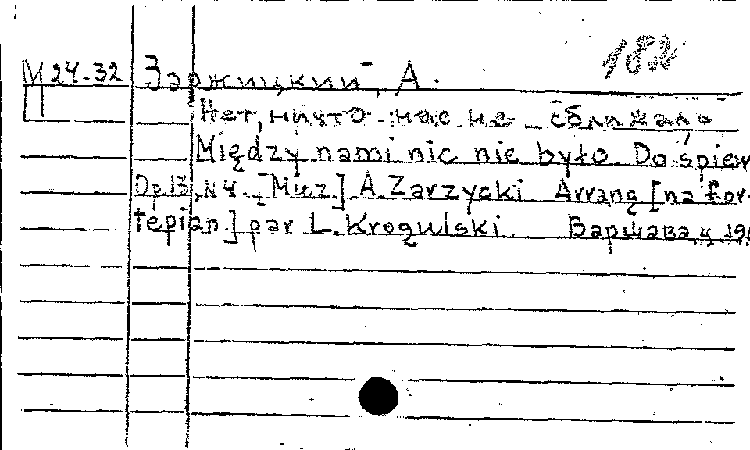 182
М 24-32 Заржицкий, А.
П
Нет, ничто нас не сближало
Między nami nic nie było. Do śpiew
Op.13, N 4. [Muz.] A. Zarzycki. Arrang [na for-
tepian] par L. Krogulski. Варшава, ц 19